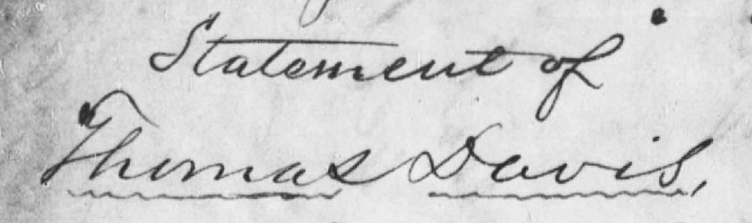 Statement of
Thomas Davis,